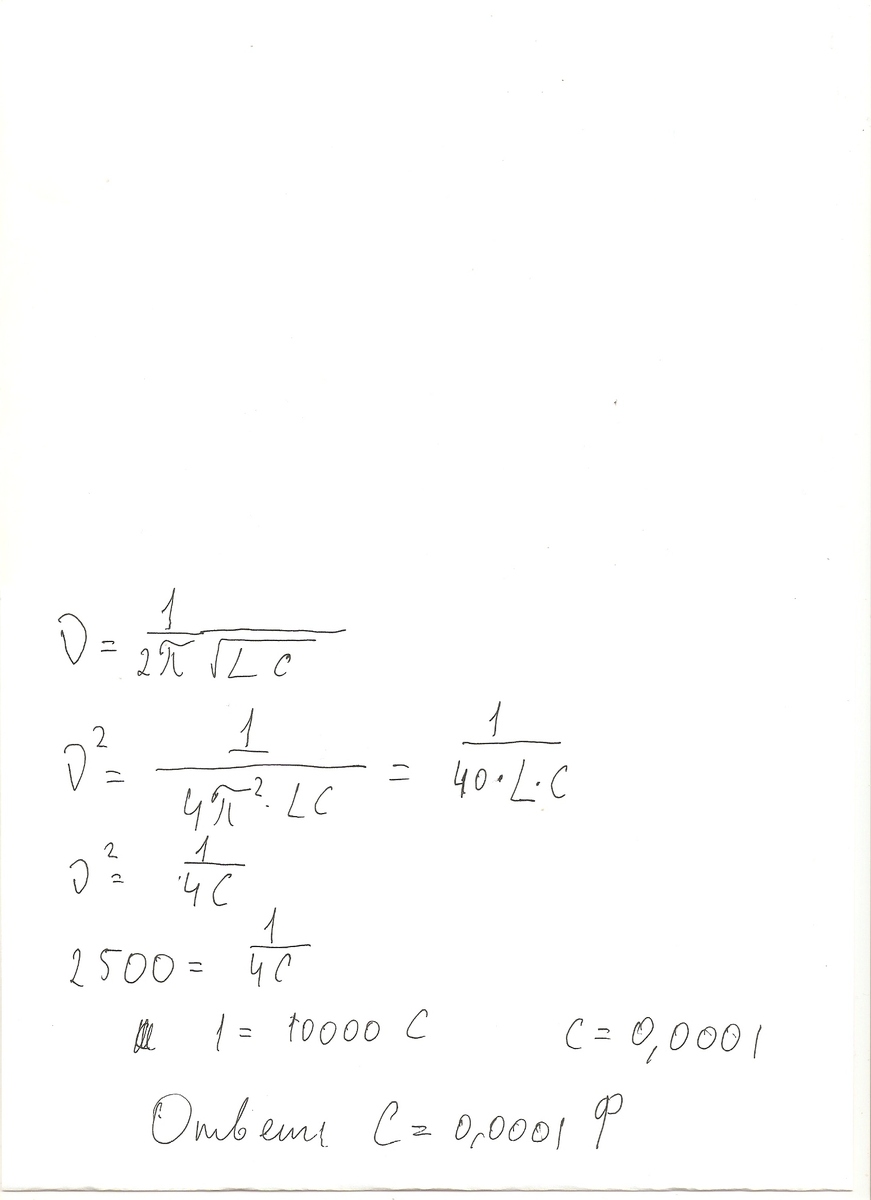 ν = 1 / (2π √(L C))
ν² = 1 / (4π² · LC) = 1 / (40 · L · C)
ν² = 1 / (4C)
2500 = 1 / (4C)
1 = 10000 C     C = 0,0001
Ответ C = 0,0001 Ф